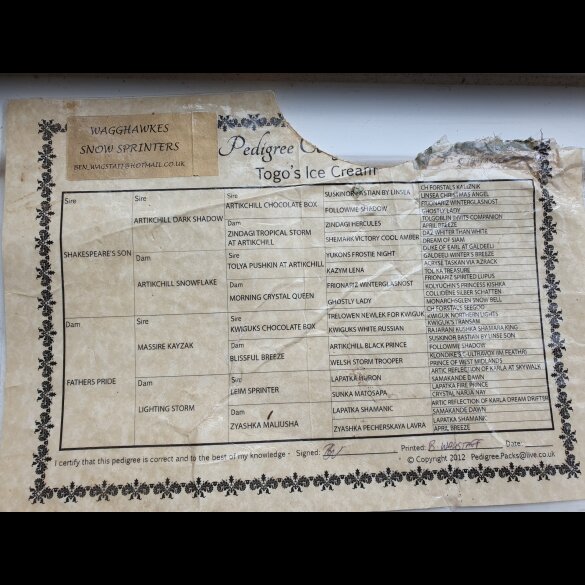 WAGGHAWKES
SNOW SPRINTERS
BEN_WAGSTAFF@HOTMAIL.CO.UK
Pedigree
Togo's Ice Cream
Sire
SHAKESPEARE'S SON
Dam
FATHERS PRIDE
Sire
ARTIKCHILL DARK SHADOW
Dam
ARTIKCHILL SNOWFLAKE
Sire
MASSIRE KAYZAK
Dam
LIGHTING STORM
Sire
ARTIKCHILL CHOCOLATE BOX
Dam
ZINDAGI TROPICAL STORM
AT ARTIKCHILL
Sire
TOLYA PUSHKIN AT ARTIKCHILL
Dam
MORNING CRYSTAL QUEEN
Sire
KWIGUKS CHOCOLATE BOX
Dam
BLISSFUL BREEZE
Sire
LEIM SPRINTER
Dam
ZYASHKA MALIUSHA
SUSKINOR BASTIAN BY LINSEA
FOLLOWME SHADOW
ZINDAGI HERCULES
SHEMARK VICTORY COOL AMBER
YUKONS FROSTIE NIGHT
KAZYM LENA
FRIONARIZ WINTERGLASNOST
GHOSTLY LADY
TRELOWEN NEWLEK FOR KWIGUK
KWIGUKS WHITE RUSSIAN
ARTIKCHILL BLACK PRINCE
WELSH STORM TROOPER
LAPATKA HURON
SUNKA MATOSAPA
LAPATKA SHAMANIC
ZYASHKA PECHERSKAYA LAVRA
CH FORSTALS KALIZNIK
LINSEA CHRISTMAS ANGEL
FRIONARIZ WINTERGLASNOST
GHOSTLY LADY
TOLGOBLIN INVITS COMPANION
APRIL BREEZE
DAZ WHITER THAN WHITE
DREAM OF SIAM
DUKE OF EARL AT GALDEELI
GALDEELI WINTER'S BREEZE
ACRYSE TASKAN VIA AZRACK
TOLIKA TREASURE
FRIONARIZ SPIRITED LUPUS
KOLYUCHIN'S PRINCESS KISHKA
COLLIDENE SILBER SCHATTEN
MONARCHSGLEN SNOW BELL
CH FORSTALS SEEGOO
KWIGUK NORTHERN LIGHTS
KWIGUK'S TRANSAM
RAJARANI KUSHKA SHAMARA KING
SUSKINOR BASTIAN BY LINSE SON
FOLLOWME SHADOW
KLONDIKE'S ULTRAVOX (IM FEATHR)
PRINCE OF WEST MIDLANDS
ARTIC REFLECTION OF KARLA AT SKYWALK
SAMAKANDE DAWN
LAPATKA FIRE PRINCE
CRYSTAL NARJA NAY
ARTIC REFLECTION OF KARLA DREAM DRIFTER
SAMAKANDE DAWN
LAPATKA SHAMANIC
APRIL BREEZE
I certify that this pedigree is correct and to the best of my knowledge - Signed: Printed: B WAGSTAFF Date:
© Copyright 2012 Pedigree.Packs@live.co.uk